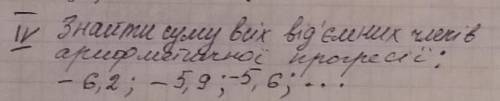 IV Знайти суму всіх від'ємних членів
арифметичної прогресії:
-6,2; -5,9; -5,6; ...